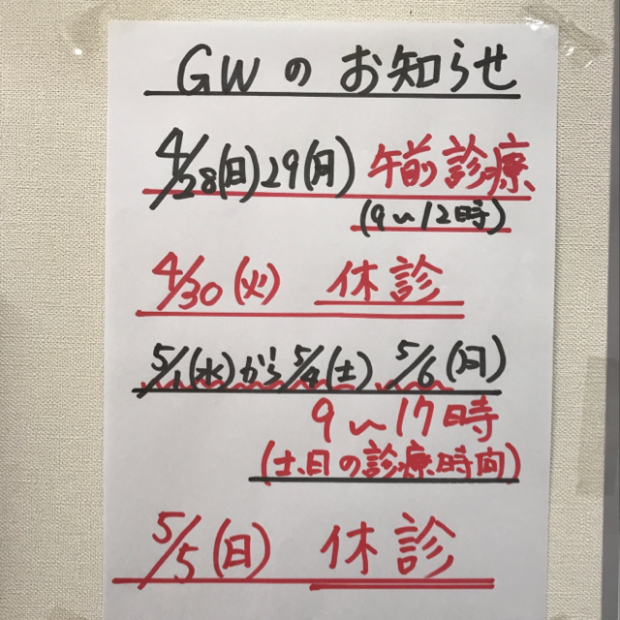 GWのお知らせ
4/28(日)29(月) 午前診療
(9~12時)
4/30(火) 休診
5/1(水)から5/4(土) 5/6(月)
9~17時
(土、日の診療時間)
5/5(日) 休診